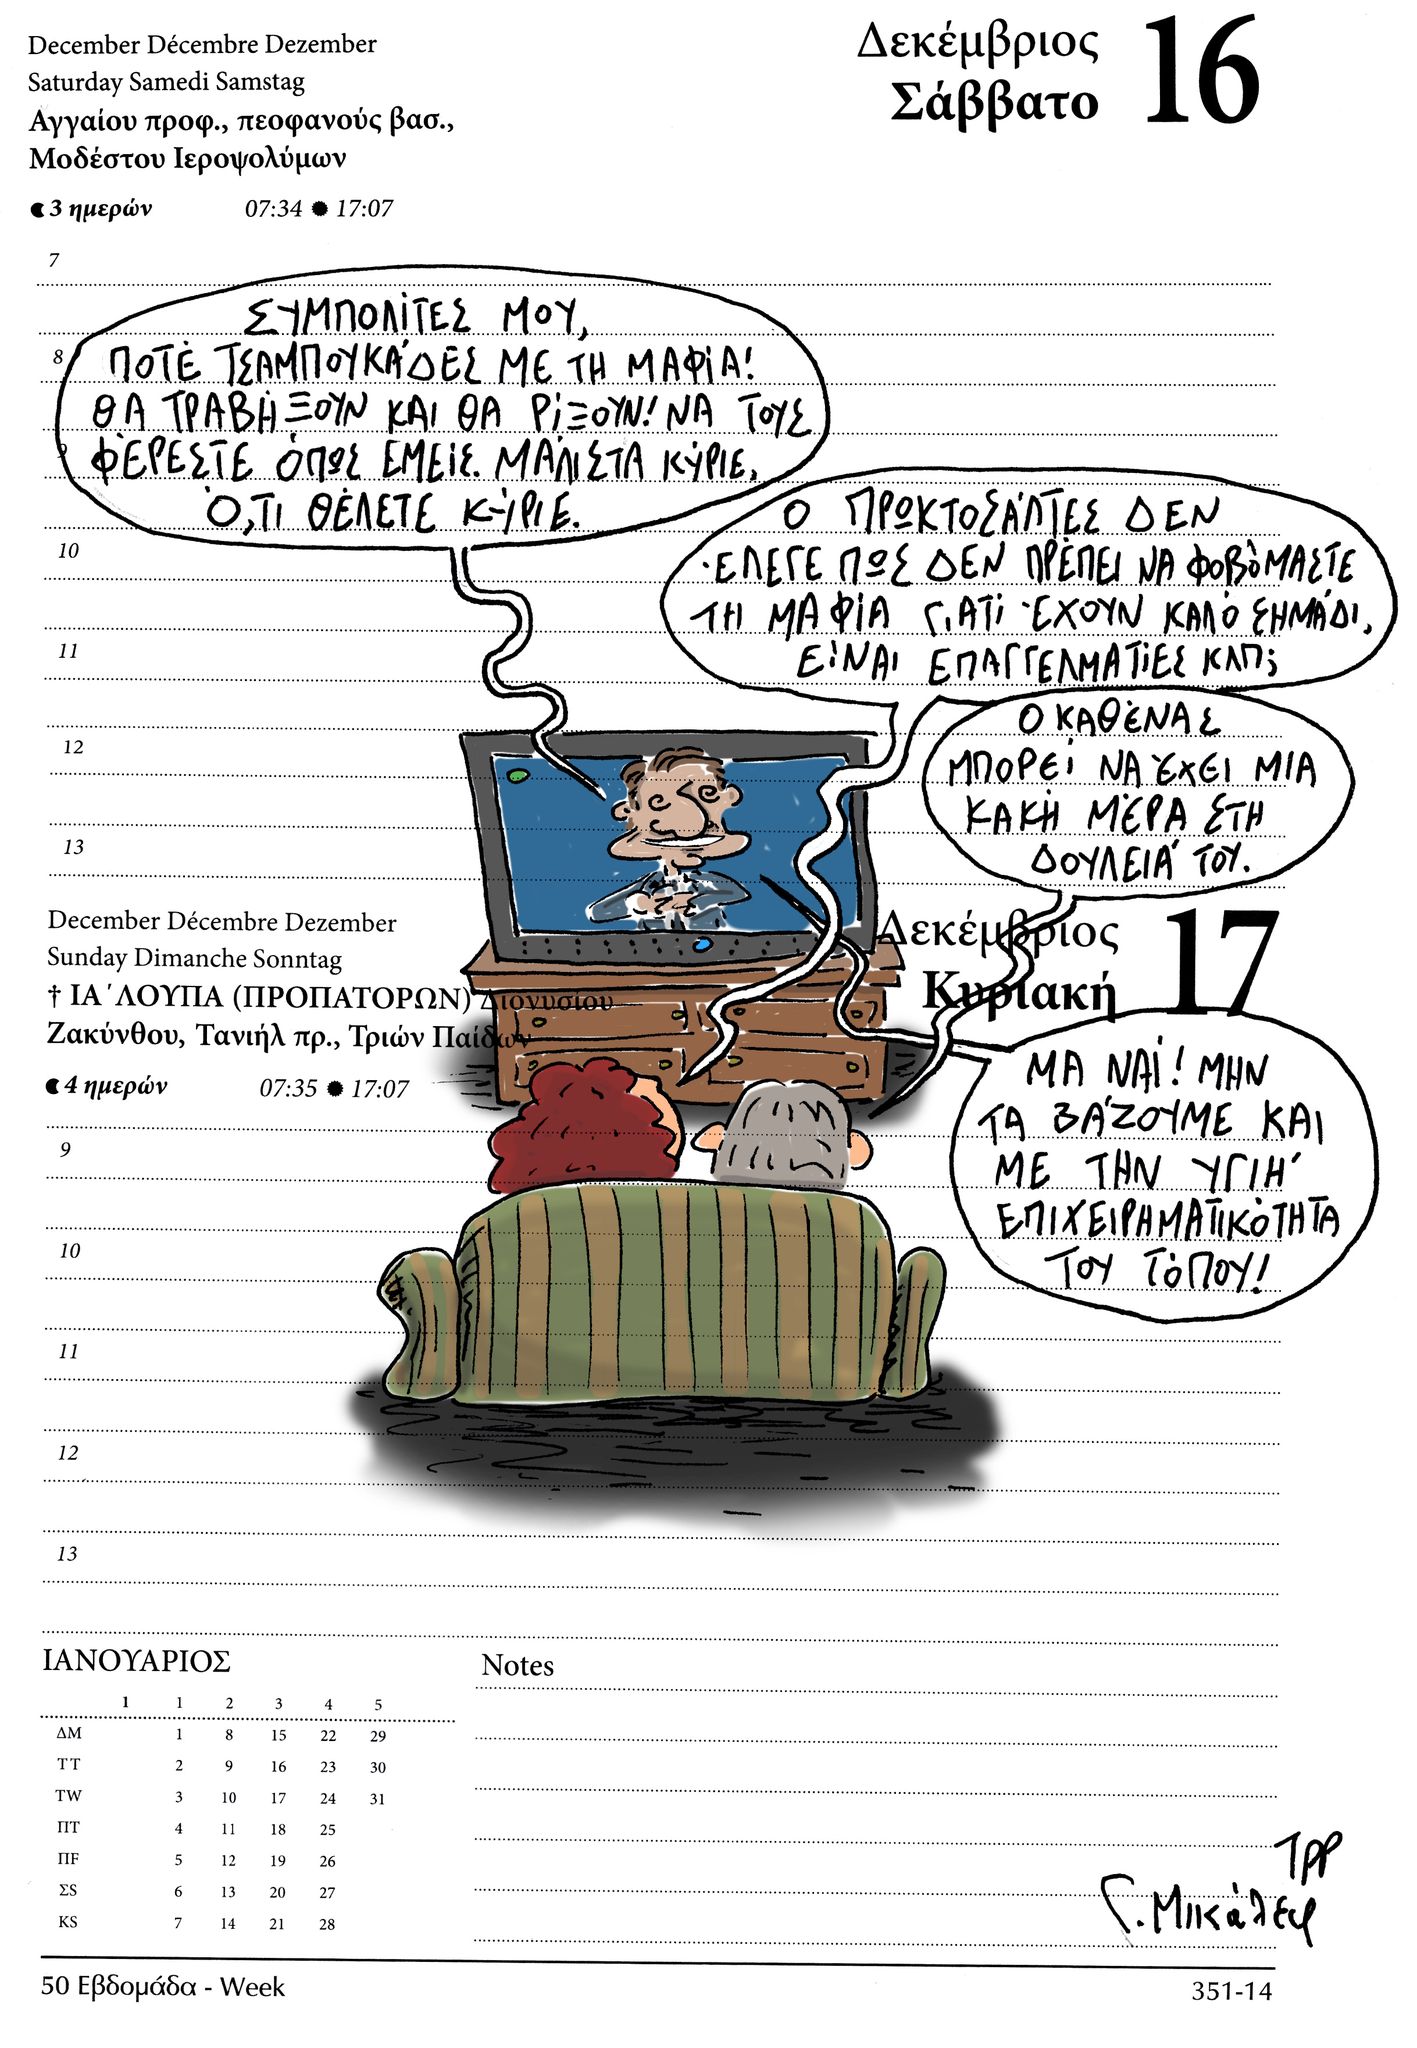 December Décembre Dezember
Saturday Samedi Samstag
Αγγαίου προφ., πεοφανούς βασ.,
Μοδέστου Ιεροψολύμων
3 ημερών 07:34 17:07
Δεκέμβριος
Σάββατο
16
7
8
9
10
11
12
13
ΣΥΜΠΟΛΙΤΕΣ ΜΟΥ,
ΠΟΤΕ ΤΣΑΜΠΟΥΚΑΔΕΣ ΜΕ ΤΗ ΜΑΦΙΑ!
ΘΑ ΤΡΑΒΗΞΟΥΝ ΚΑΙ ΘΑ ΡΙΞΟΥΝ! ΝΑ ΤΟΥΣ
ΦΕΡΕΣΤΕ ΌΠΩΣ ΕΜΕΙΣ. ΜΑΛΙΣΤΑ ΚΥΡΙΕ,
Ό,ΤΙ ΘΕΛΕΤΕ ΚΥΡΙΕ.
Ο ΠΡΩΚΤΟΣΑΛΤΕΣ ΔΕΝ
ΈΛΕΓΕ ΠΩΣ ΔΕΝ ΠΡΕΠΕΙ ΝΑ ΦΟΒΟΜΑΣΤΕ
ΤΗ ΜΑΦΙΑ ΓΙΑΤΙ ΈΧΟΥΝ ΚΑΛΟ ΣΗΜΑΔΙ,
ΕΙΝΑΙ ΕΠΑΓΓΕΛΜΑΤΙΕΣ ΚΛΠ;
Ο ΚΑΘΕΝΑΣ
ΜΠΟΡΕΙ ΝΑ ΈΧΕΙ ΜΙΑ
ΚΑΚΗ ΜΕΡΑ ΣΤΗ
ΔΟΥΛΕΙΑ ΤΟΥ.
ΜΑ ΝΑΙ! ΜΗΝ
ΤΑ ΒΑΖΟΥΜΕ ΚΑΙ
ΜΕ ΤΗΝ ΥΓΙΗ
ΕΠΙΧΕΙΡΗΜΑΤΙΚΟΤΗΤΑ
ΤΟΥ ΤΟΠΟΥ!
December Décembre Dezember
Sunday Dimanche Sonntag
† ΙΑ΄ΛΟΥΠΑ (ΠΡΟΠΑΤΟΡΩΝ) Διονυσίου
Ζακύνθου, Τανιήλ πρ., Τριών Παίδων
4 ημερών 07:35 17:07
Δεκέμβριος
Κυριακή
17
9
10
11
12
13
ΙΑΝΟΥΑΡΙΟΣ
1 1 2 3 4 5
ΔΜ 1 8 15 22 29
ΤΤ 2 9 16 23 30
TW 3 10 17 24 31
ΠΤ 4 11 18 25
ΠF 5 12 19 26
ΣS 6 13 20 27
KS 7 14 21 28
Notes
ΤΡΡ
Γ. Μικάλεφ
50 Εβδομάδα - Week
351-14